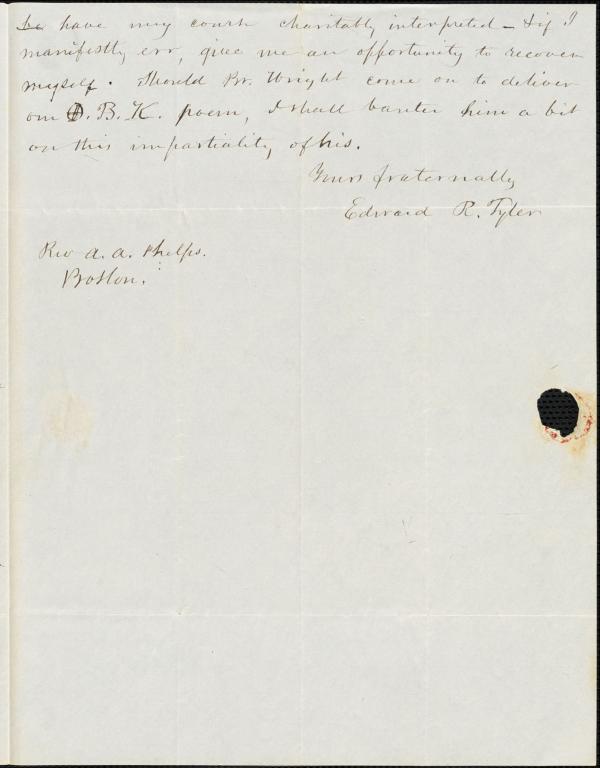 to have my course charitably interpreted – & if I
manifestly err, give me an opportunity to recover
myself. Should Br. Wright come on to deliver
our Φ. B. K. poem, I shall banter him a bit
on this impartiality of his.
Yours fraternally
Edward R. Tyler
Rev A. A. Phelps.
Boston.